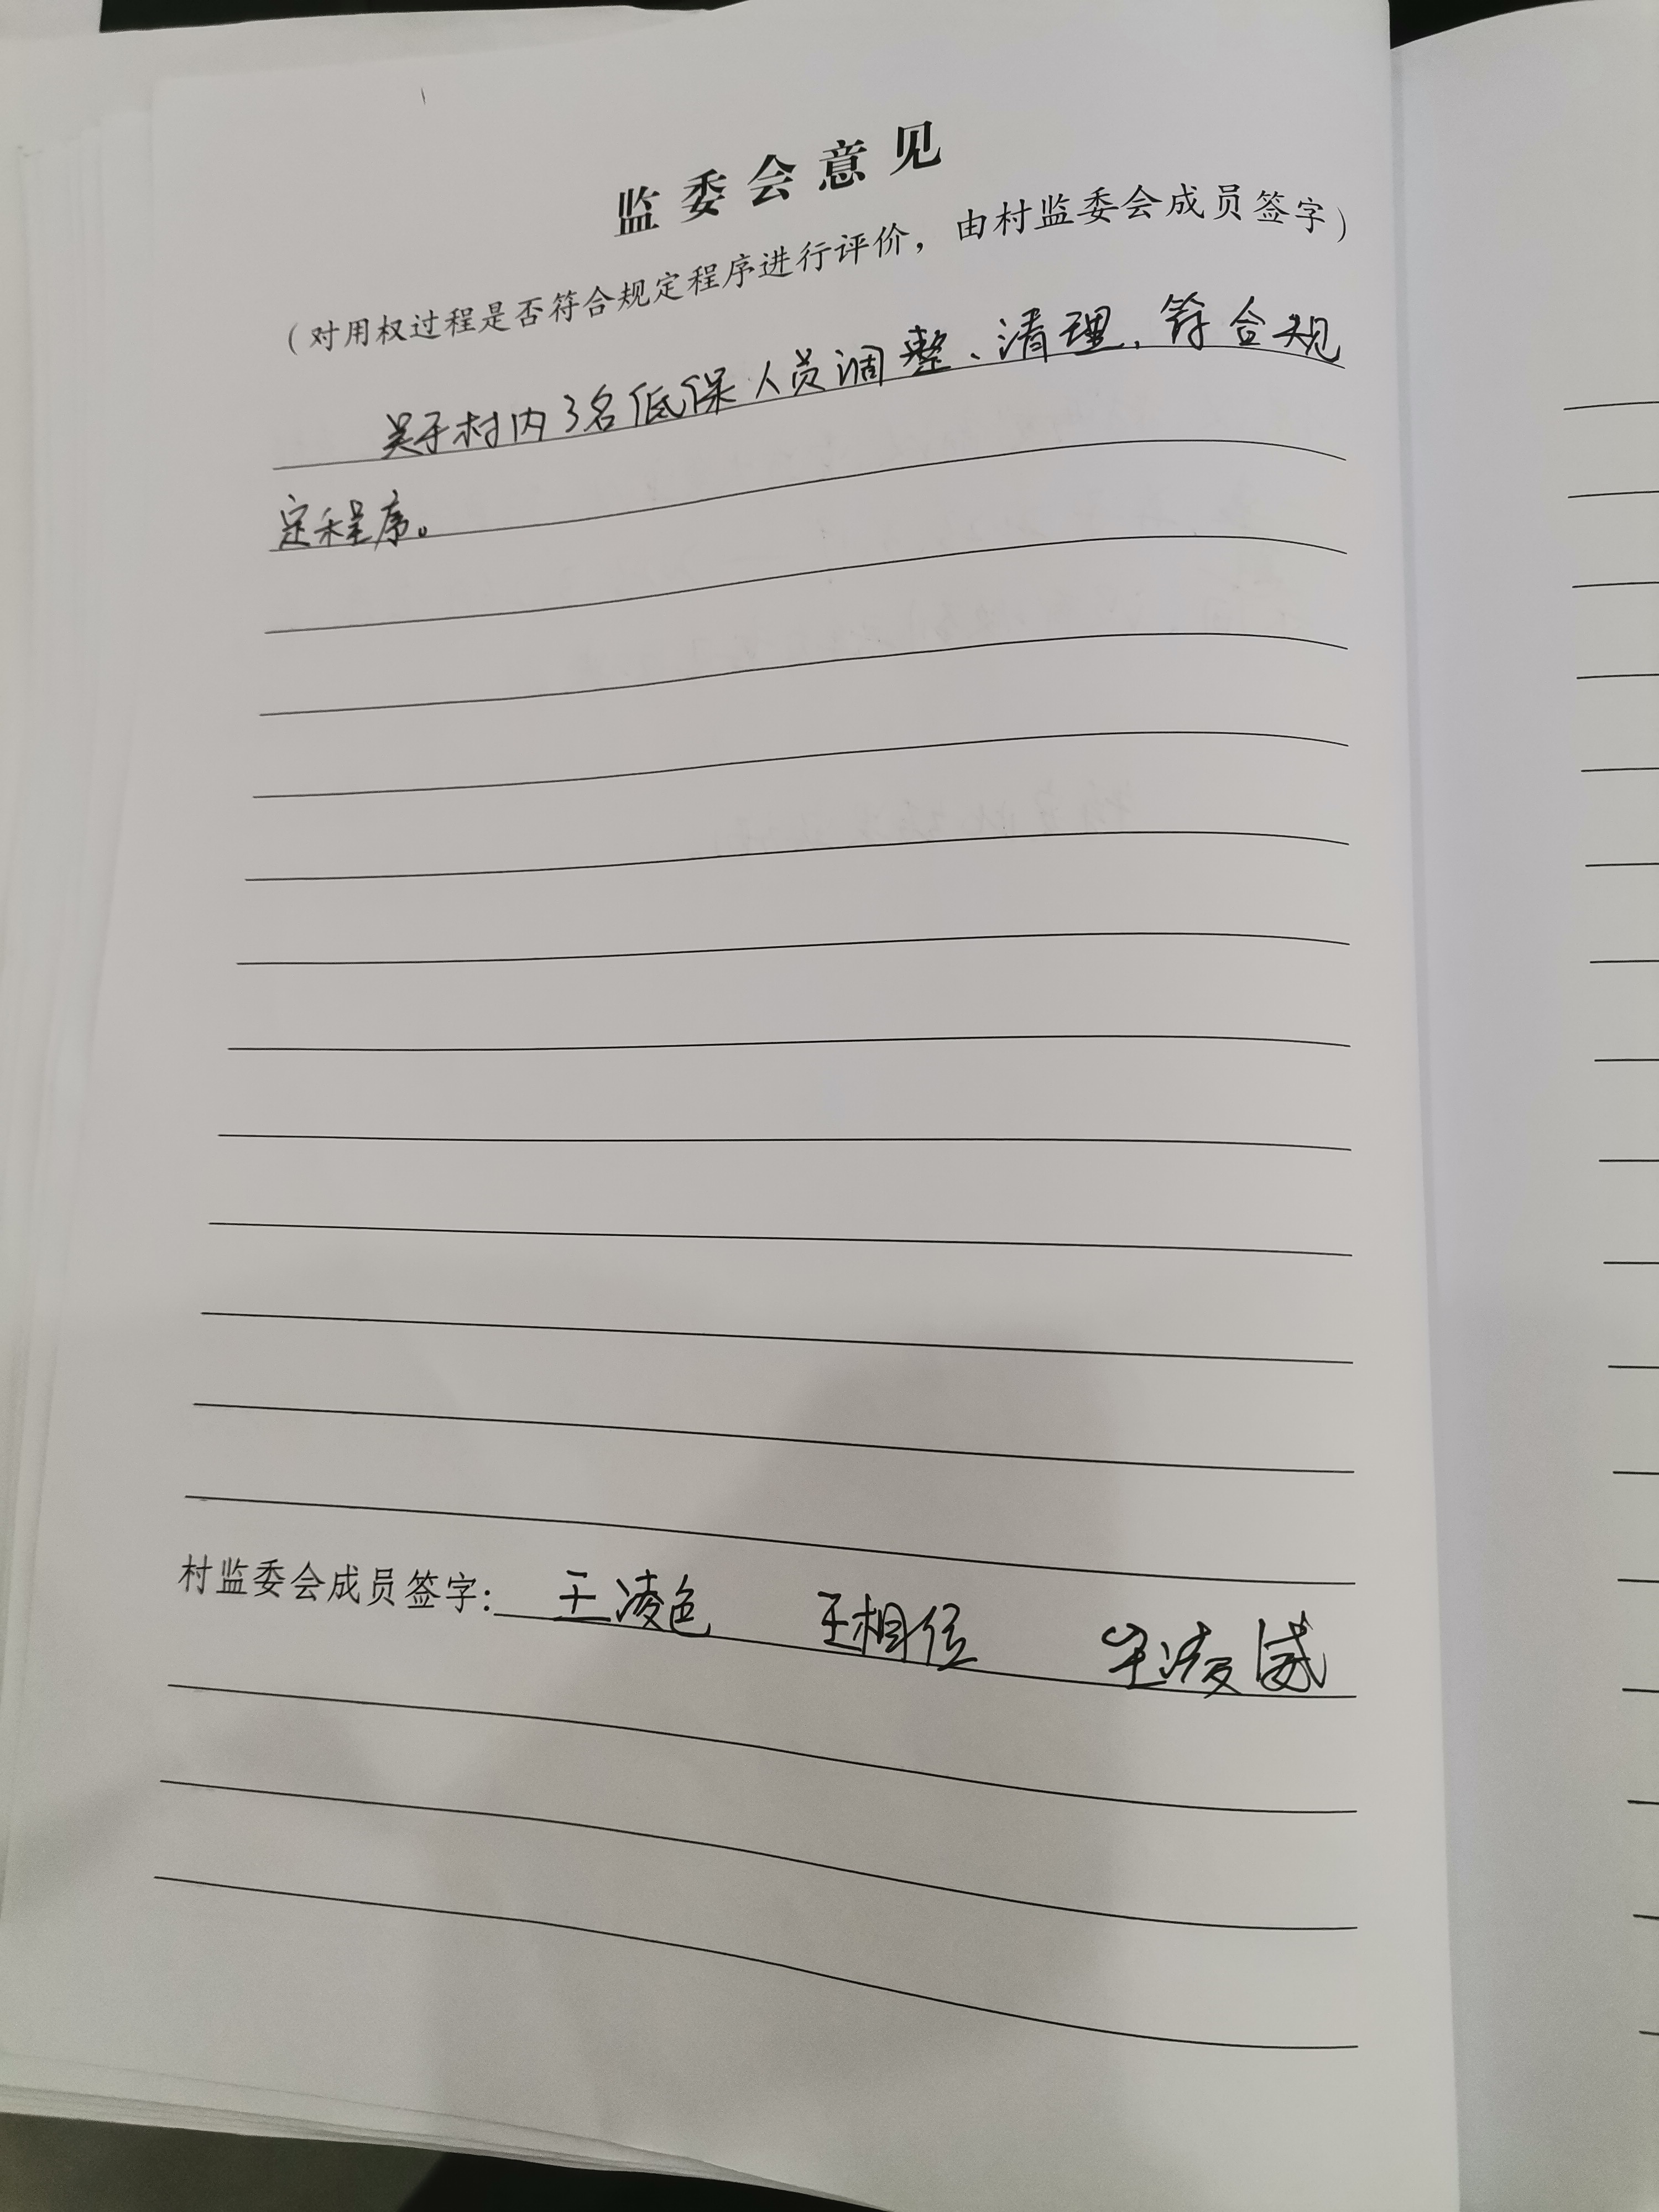 监委会意见
（对用权过程是否符合规定程序进行评价，由村监委会成员签字）
关于村内3名低保人员调整、清理，符合规
定程序。
村监委会成员签字：王凌色 王相位